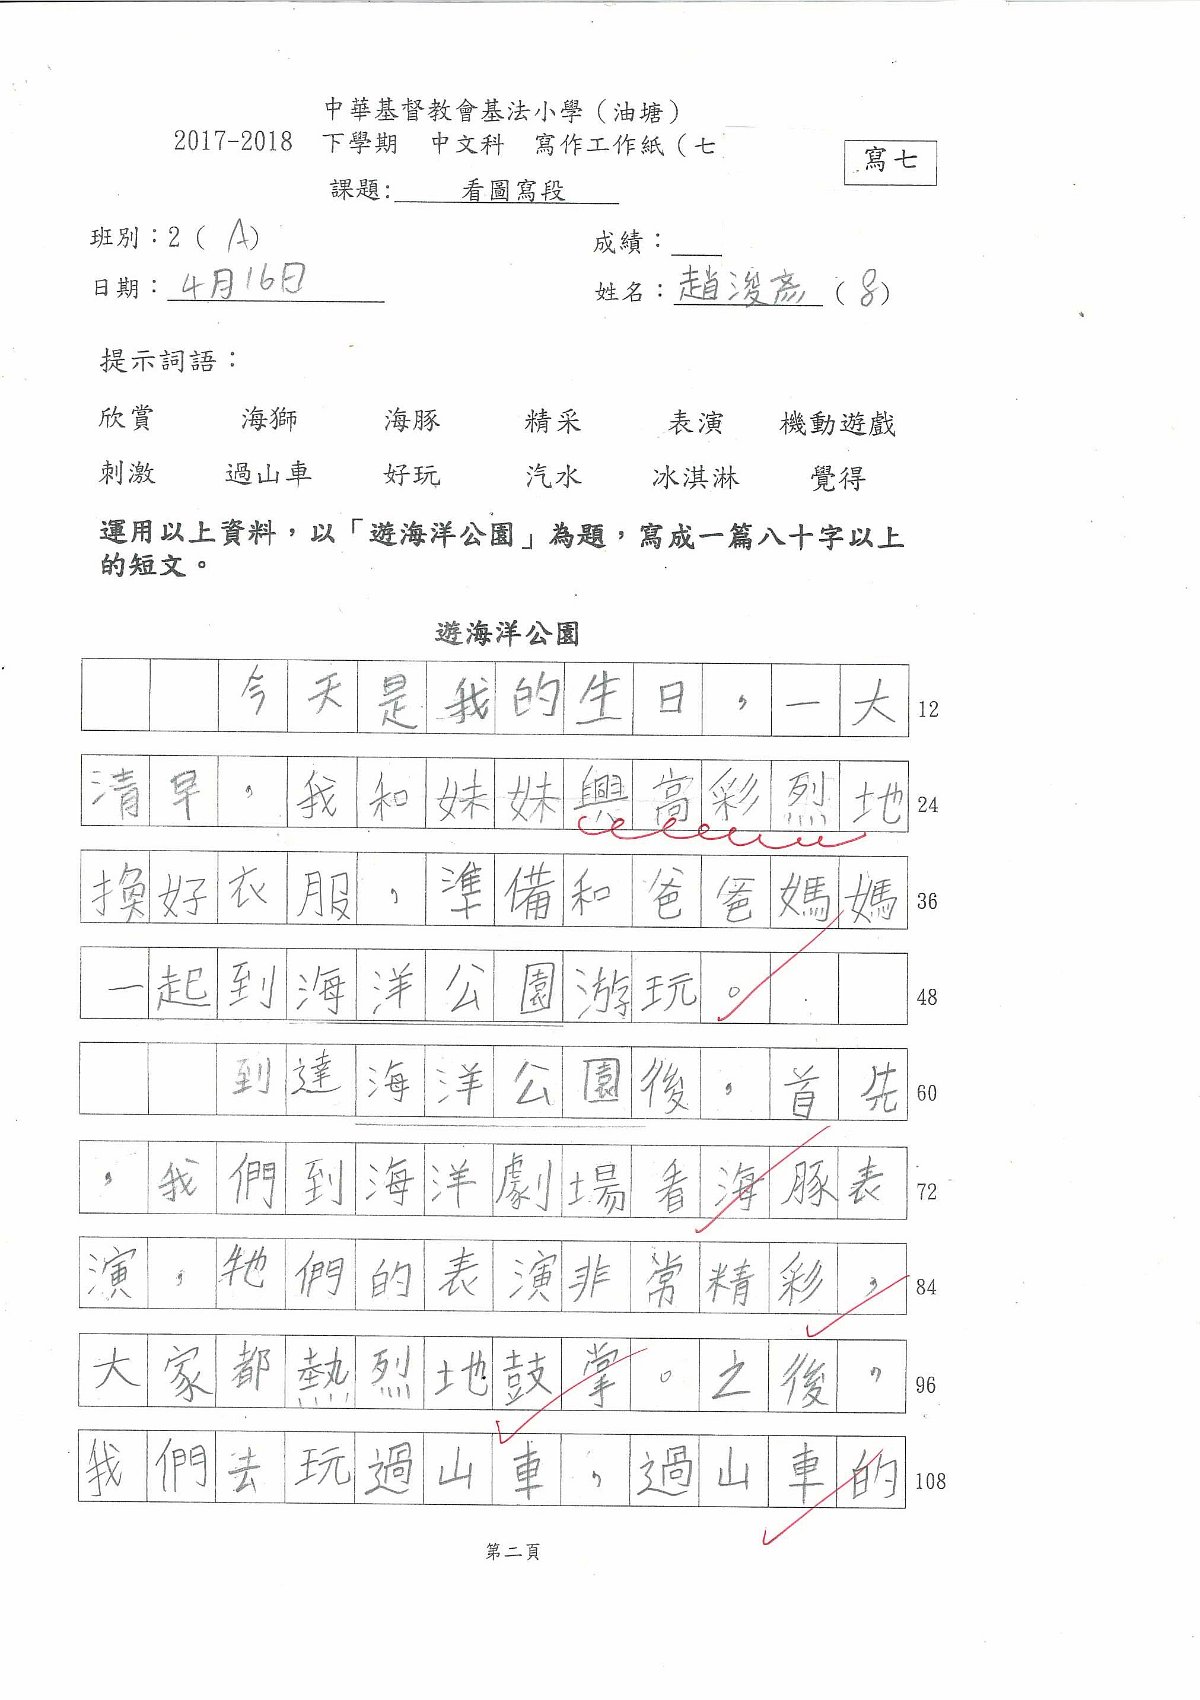 中華基督教會基法小學（油塘）
2017-2018 下學期 中文科 寫作工作紙（七
寫七
課題: 看圖寫段
班別：2（A）
成績：
日期：4月16日
姓名：趙浚彥（8）
提示詞語：
欣賞 海獅 海豚 精采 表演 機動遊戲
刺激 過山車 好玩 汽水 冰淇淋 覺得
運用以上資料，以「遊海洋公園」為題，寫成一篇八十字以上
的短文。
遊海洋公園
今天是我的生日，一大 12
清早，我和妹妹興高彩烈地 24
換好衣服，準備和爸爸媽媽 36
一起到海洋公園游玩。 48
到達海洋公園後，首先 60
，我們到海洋劇場看海豚表 72
演，牠們的表演非常精彩， 84
大家都熱烈地鼓掌。之後， 96
我們去玩過山車，過山車的 108
第二頁